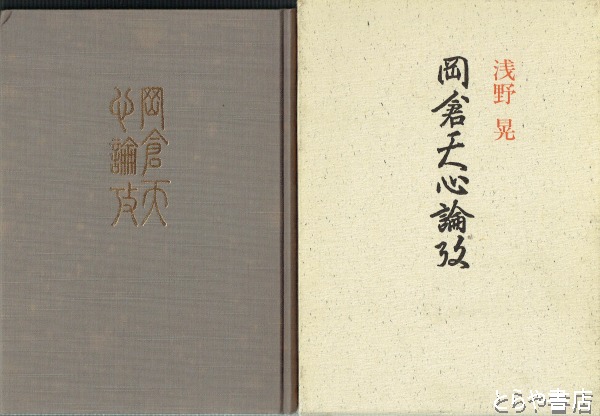 岡倉天
心論攷
浅野 晃
岡倉天心論攷
とらや書店